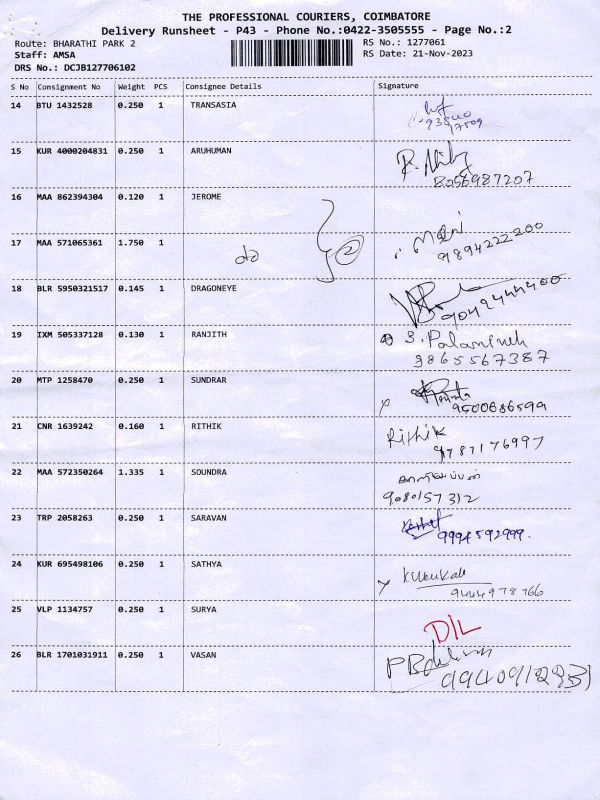 THE PROFESSIONAL COURIERS, COIMBATORE
Delivery Runsheet - P43 - Phone No.:0422-3505555 - Page No.:2
Route: BHARATHI PARK 2 RS No.: 1277061
Staff: AMSA RS Date: 21-Nov-2023
DRS No.: DCJB127706102
S No Consignment No Weight PCS Consignee Details Signature
14 BTU 1432528 0.250 1 TRANSASIA
15 KUR 4000204831 0.250 1 ARUHUMAN
8056987207
16 MAA 862394304 0.120 1 JEROME
17 MAA 571065361 1.750 1 do 2 Mani
9894222200
18 BLR 5950321517 0.145 1 DRAGONEYE
9042444400
19 IXM 505337128 0.130 1 RANJITH
9865567387
20 MTP 1258470 0.250 1 SUNDRAR
9500686599
21 CNR 1639242 0.160 1 RITHIK Rithik
9787176997
22 MAA 572350264 1.335 1 SOUNDRA
9080157312
23 TRP 2058263 0.250 1 SARAVAN
9994592999
24 KUR 695498106 0.250 1 SATHYA
9444978766
25 VLP 1134757 0.250 1 SURYA
D/L
26 BLR 1701031911 0.250 1 VASAN